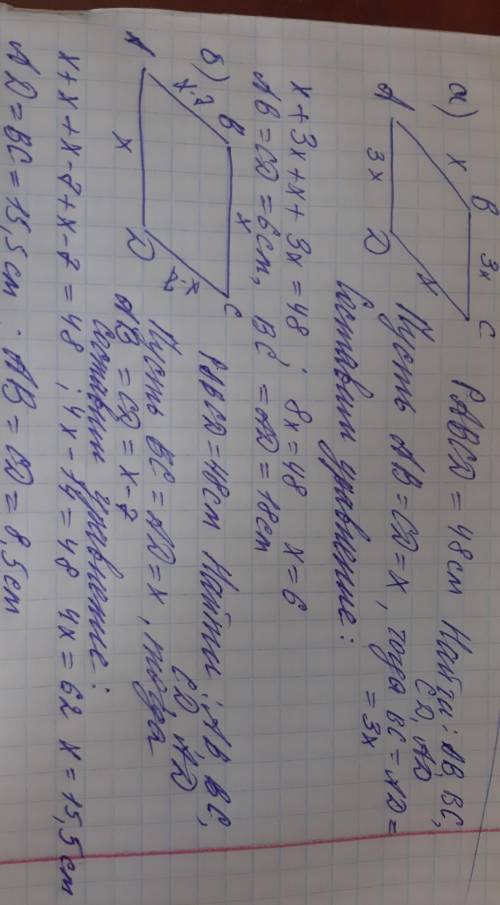 а) B 3x C
x x
A 3x D
PABCD = 48 см Найти: AB, BC,
CD, AD
Пусть AB = CD = x, тогда BC = AD =
= 3x
Составим уравнение:
x + 3x + x + 3x = 48; 8x = 48 x = 6
AB = CD = 6 см, BC = AD = 18 см
б) B x C
x-7 x-7
A x D
PABCD = 48 см Найти: AB, BC,
CD, AD
Пусть BC = AD = x, тогда
AB = CD = x-7
Составим уравнение:
x + x + x - 7 + x - 7 = 48; 4x - 14 = 48 4x = 62 x = 15,5 см
AD = BC = 15,5 см; AB = CD = 8,5 см